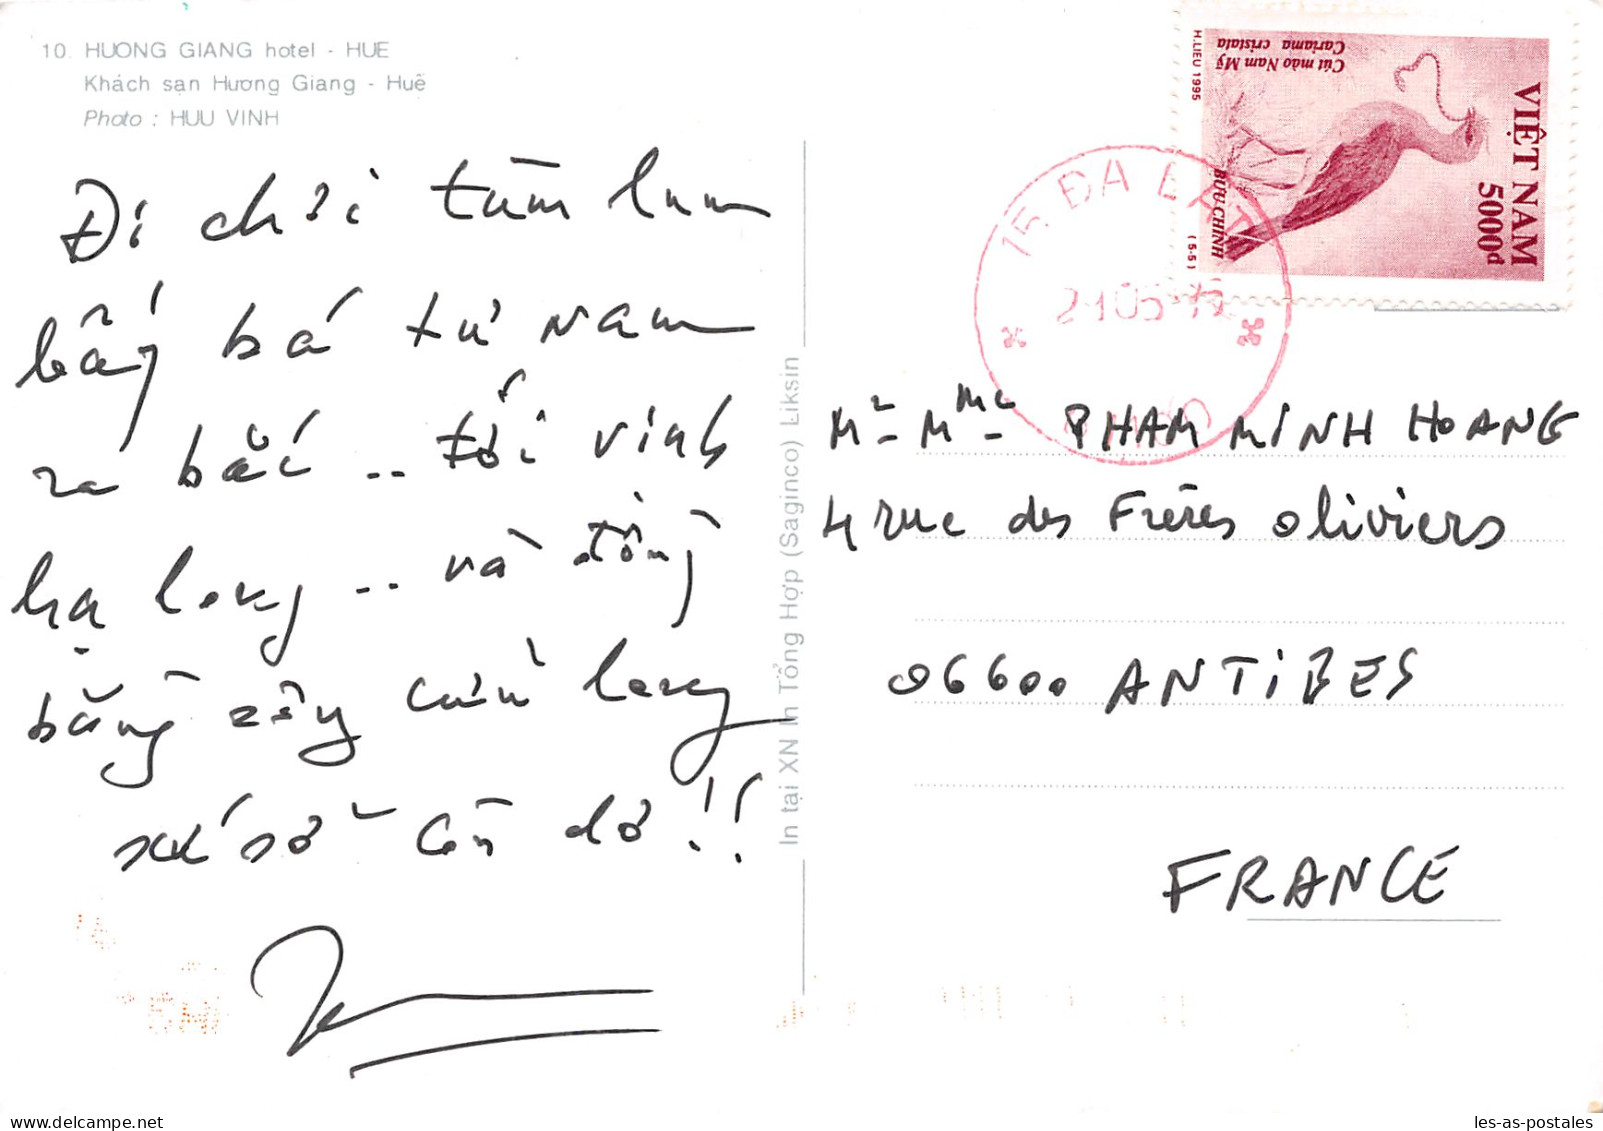 10. HUONG GIANG hotel - HUE
Khách sạn Hương Giang - Huê
Photo : HUU VINH
Đi chơi tùm lum
bá từ nam
ra bắc .. tới vinh
hạ long .. và
bằng cửu long
xứ sở còn đó !!
In tại XN In Tổng Hợp (Saginco) Liksin
VIỆT NAM
5000đ
Cút mào Nam Mỹ
Cariama cristata
BƯU CHÍNH
(5-5)
H.LIEU 1995
15 ĐA
Mr - Mme PHAM MINH HOANG
4 rue des Frères Oliviers
06600 ANTIBES
FRANCE
les-as-postales